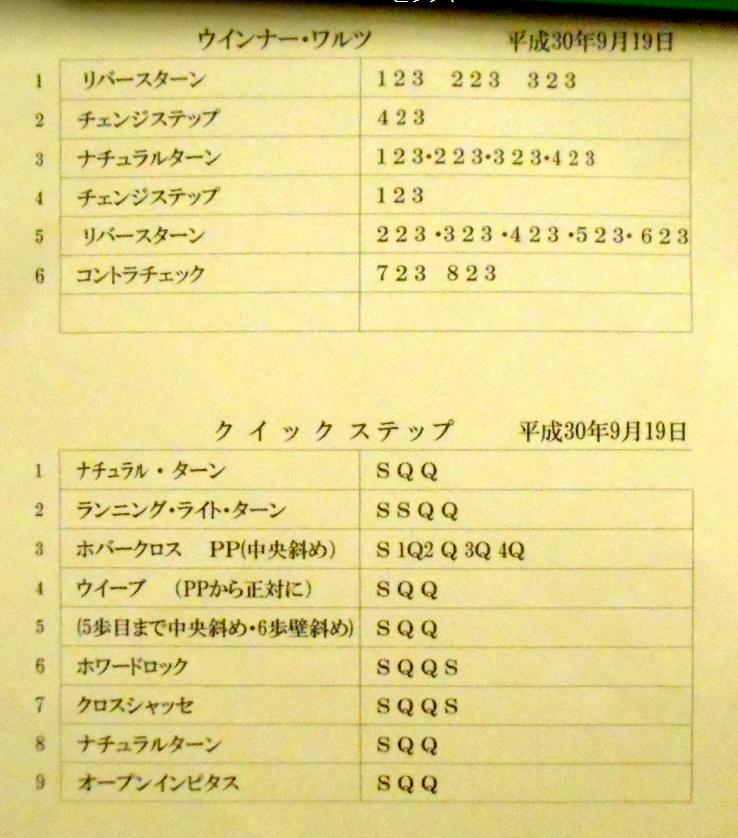 ウインナー・ワルツ 平成30年9月19日
1 リバースターン 1 2 3 2 2 3 3 2 3
2 チェンジステップ 4 2 3
3 ナチュラルターン 1 2 3・2 2 3・3 2 3・4 2 3
4 チェンジステップ 1 2 3
5 リバースターン 2 2 3 ・3 2 3 ・4 2 3 ・5 2 3・ 6 2 3
6 コントラチェック 7 2 3 8 2 3
クイックステップ 平成30年9月19日
1 ナチュラル・ターン S Q Q
2 ランニング・ライト・ターン S S Q Q
3 ホバークロス PP(中央斜め) S 1Q2 Q 3Q 4Q
4 ウイーブ (PPから正対に) S Q Q
5 (5歩目まで中央斜め・6歩壁斜め) S Q Q
6 ホワードロック S Q Q S
7 クロスシャッセ S Q Q S
8 ナチュラルターン S Q Q
9 オープンインピタス S Q Q